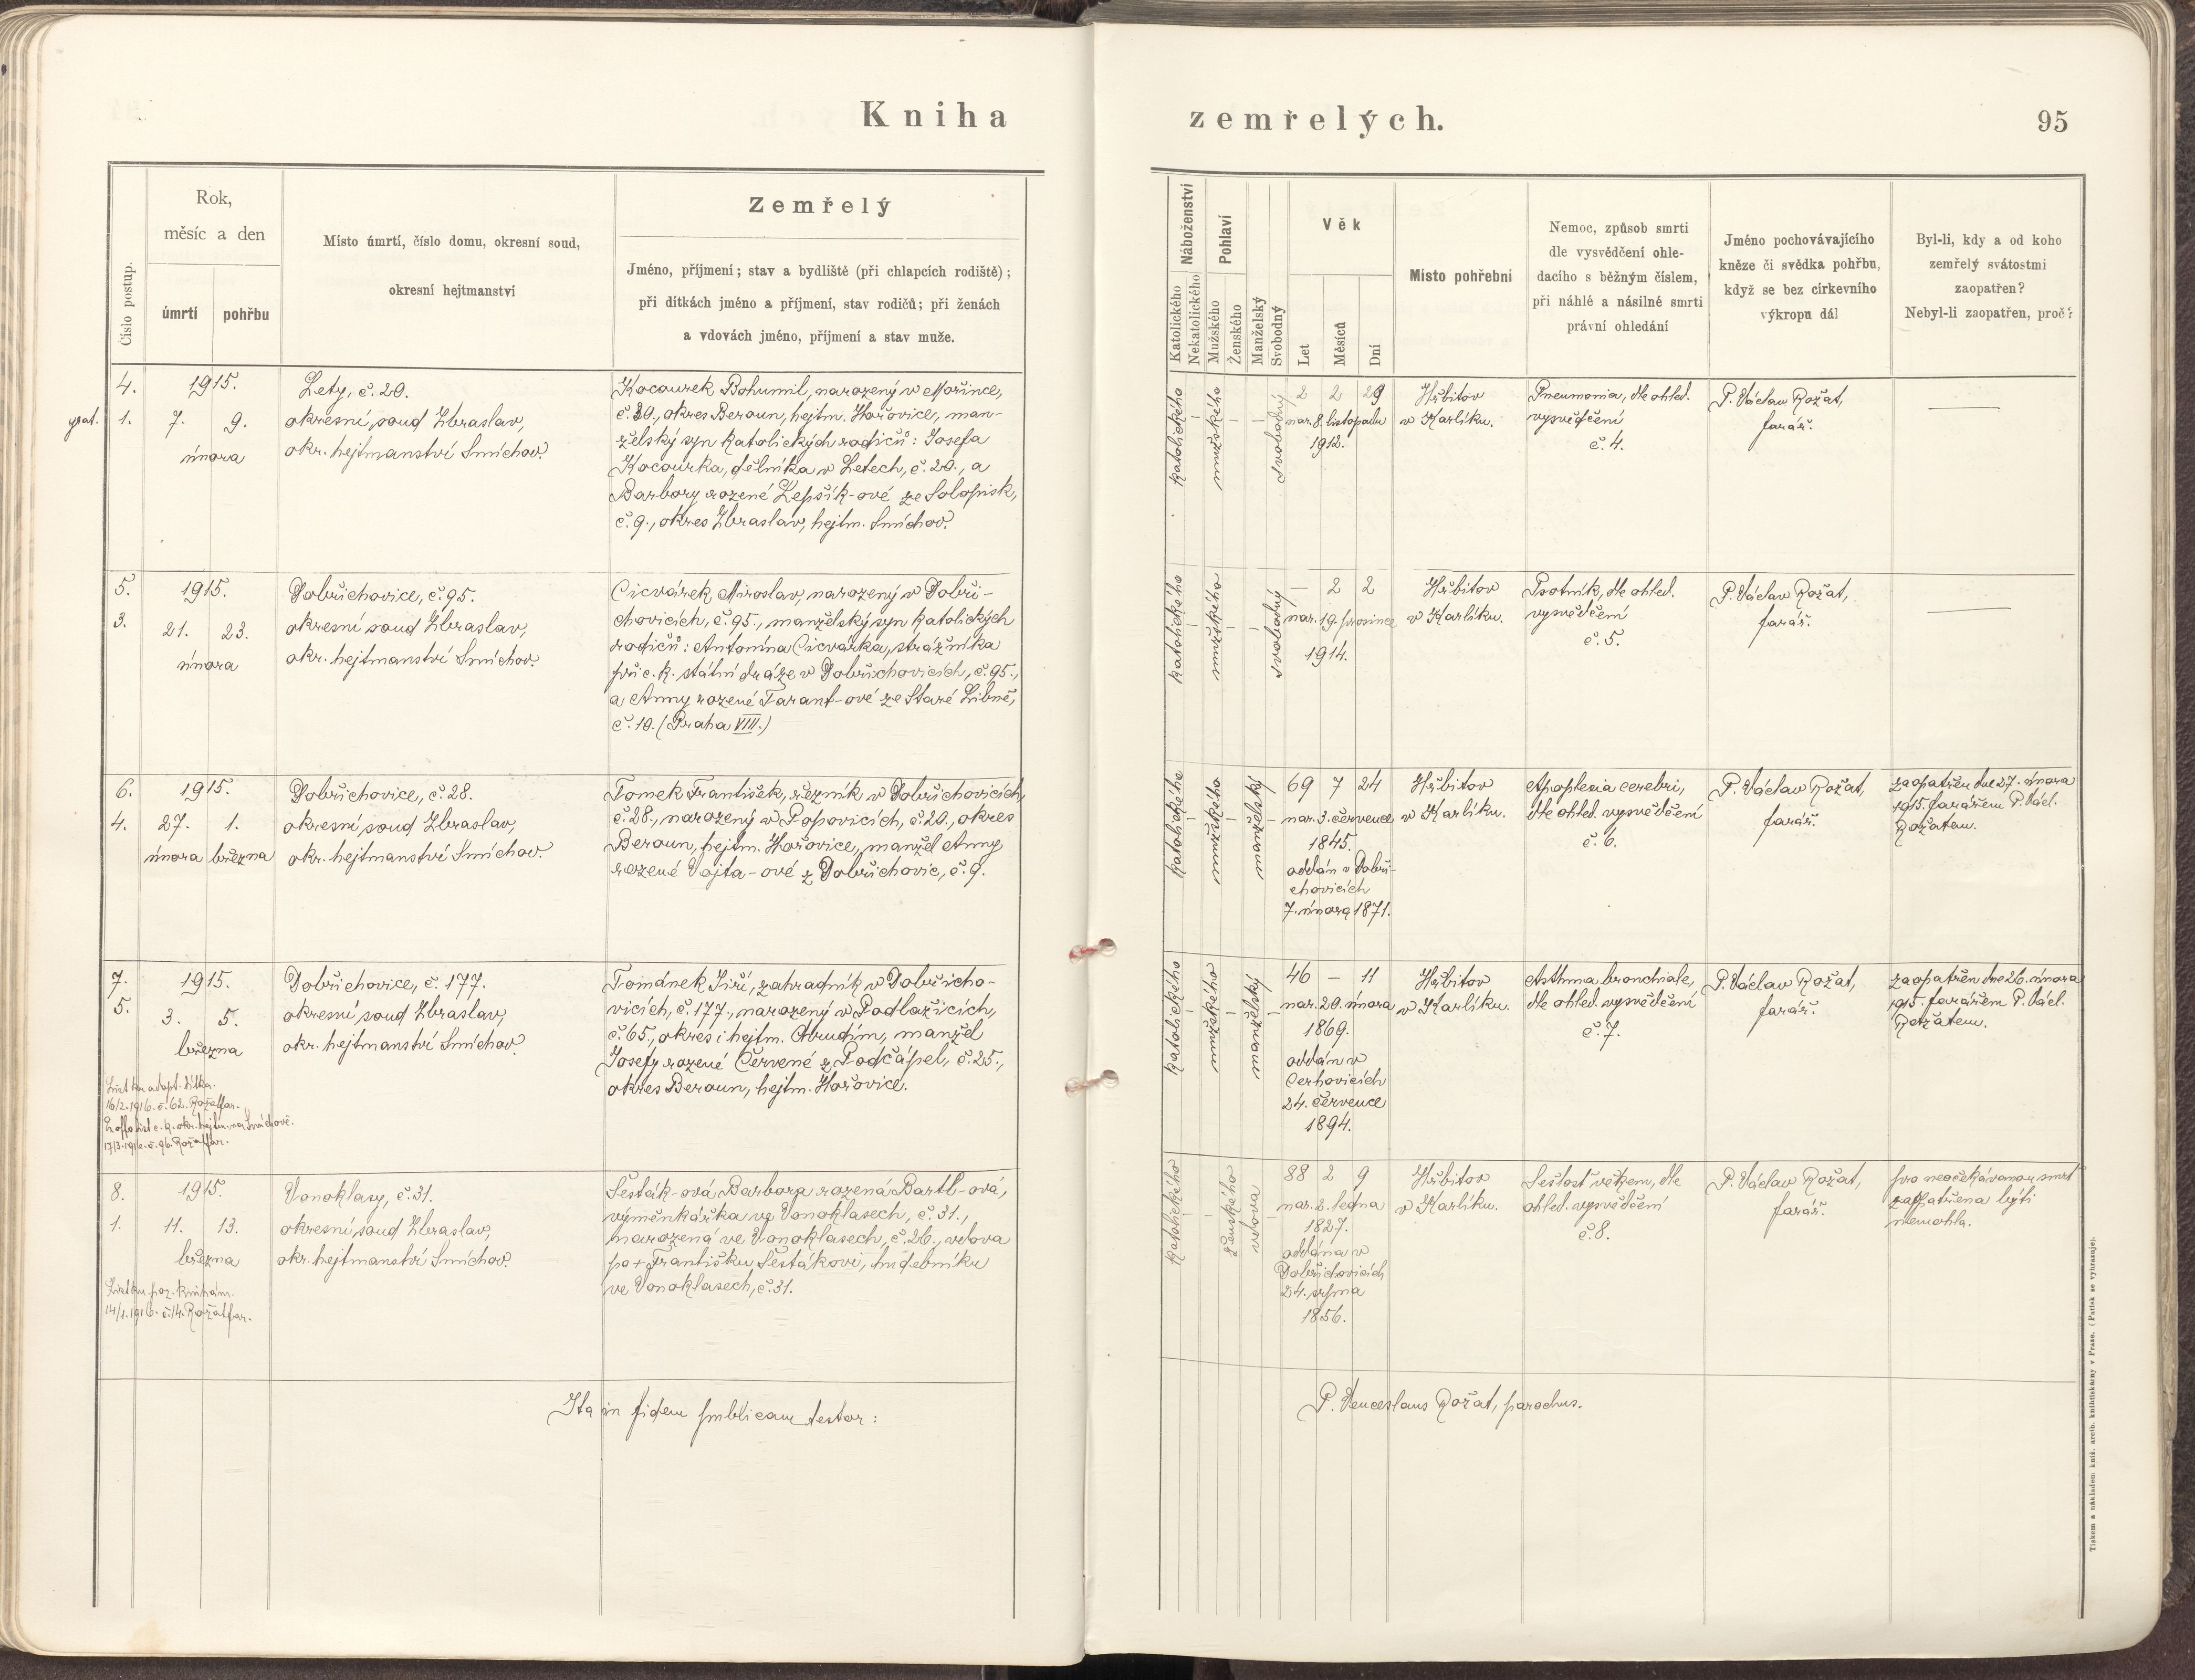 Kniha
zemřelých.
95
Číslo postup.
Rok,
měsíc a den
úmrtí
pohřbu
Místo úmrtí, číslo domu, okresní soud,
okresní hejtmanství
Zemřelý
Jméno, příjmení; stav a bydliště (při chlapcích rodiště);
při dítkách jméno a příjmení, stav rodičů; při ženách
a vdovách jméno, příjmení a stav muže.
Náboženství
Katolického
Nekatolického
Pohlaví
Mužského
Ženského
Manželský
Svobodný
Věk
Let
Měsíců
Dní
Místo pohřební
Nemoc, způsob smrti
dle vysvědčení ohle-
dacího s běžným číslem,
při náhlé a násilné smrti
právní ohledání
Jméno pochovávajícího
kněze či svědka pohřbu,
když se bez církevního
výkropu dál
Byl-li, kdy a od koho
zemřelý svátostmi
zaopatřen?
Nebyl-li zaopatřen, proč?
4.
grat. 1.
1915.
7. 9.
února
Lety, č. 20.
okresní soud Zbraslav,
okr. hejtmanství Smíchov.
Kocourek Bohumil, narozený v Mořince,
č. 30., okres Beroun, hejtm. Hořovice, man-
želský syn katolických rodičů: Josefa
Kocourka, dělníka v Letech, č. 20., a
Barbory rozené Lepšík-ové ze Solopisk,
č. 9., okres Zbraslav, hejtm. Smíchov.
katolického
–
mužského
–
–
svobodný
2 2 29
nar. 8. listopadu
1912.
Hřbitov
v Karlíku.
Pneumonia, dle ohled.
vysvědčení
č. 4.
P. Václav Rožat,
farář.
—
5.
3.
1915.
21. 23.
února
Dobřichovice, č. 95.
okresní soud Zbraslav,
okr. hejtmanství Smíchov.
Cicvárek Miroslav, narozený v Dobři-
chovicích, č. 95., manželský syn katolických
rodičů: Antonína Cicvárka, strážníka
při c. k. státní dráze v Dobřichovicích, č. 95.,
a Anny rozené Tarant-ové ze Staré Libně,
č. 10. (Praha VIII.)
katolického
–
mužského
–
–
svobodný
– 2 2
nar. 19. prosince
1914.
Hřbitov
v Karlíku.
Psotník, dle ohled.
vysvědčení
č. 5.
P. Václav Rožat,
farář.
—
6.
4.
1915.
27. 1.
února března
Dobřichovice, č. 28.
okresní soud Zbraslav,
okr. hejtmanství Smíchov.
Tomek František, řezník v Dobřichovicích,
č. 28., narozený v Popovicích, č. 20., okres
Beroun, hejtm. Hořovice, manžel Anny
rozené Vojta-ové z Dobřichovic, č. 9.
katolického
–
mužského
–
manželský
–
69 7 24
nar. 3. července
1845.
oddán v Dobři-
chovicích
7. února 1871.
Hřbitov
v Karlíku.
Apoplexia cerebri,
dle ohled. vysvědčení
č. 6.
P. Václav Rožat,
farář.
zaopatřen dne 27. února
1915. farářem P. Václ.
Rožatem.
7.
5.
1915.
3. 5.
března
List ku adopt. dítka.
16/2. 1916. č. 62. Rožat far.
17/3. 1916. č. 96. Rožat far.
Dobřichovice, č. 177.
okresní soud Zbraslav,
okr. hejtmanství Smíchov.
Tománek Jiří, zahradník v Dobřicho-
vicích, č. 177., narozený v Podlažicích,
č. 65., okres i hejtm. Chrudim, manžel
Josefy rozené Červené z Podčápel, č. 25.,
okres Beroun, hejtm. Hořovice.
katolického
–
mužského
–
manželský
–
46 – 11
nar. 20. února
1869.
oddán v
Cerhovicích
24. července
1894.
Hřbitov
v Karlíku.
Asthma bronchiale,
dle ohled. vysvědčení
č. 7.
P. Václav Rožat,
farář.
zaopatřen dne 26. února
1915. farářem P. Václ.
Rožatem.
8.
1.
1915.
11. 13.
března
List ku poz. knihám.
14/1. 1916. č. 14. Rožat far.
Vonoklasy, č. 31.
okresní soud Zbraslav,
okr. hejtmanství Smíchov.
Šesták-ová Barbora rozená Bartl-ová,
výměnkářka ve Vonoklasech, č. 31.,
narozená ve Vonoklasech, č. 26., vdova
po + Františku Šestákovi, hudebníku
ve Vonoklasech, č. 31.
katolického
–
–
ženského
vdova
–
88 2 9
nar. 2. ledna
1827.
oddána v
Dobřichovicích
24. srpna
1856.
Hřbitov
v Karlíku.
Sešlost věkem, dle
ohled. vysvědčení
č. 8.
P. Václav Rožat,
farář.
pro neočekávanou smrt
zaopatřena býti
nemohla.
Ita in fidem publicam testor:
P. Venceslaus Rožat, parochus.
Tiskem a nákladem kníž. arcib. knihtiskárny v Praze. (Patisk se vyhrazuje).